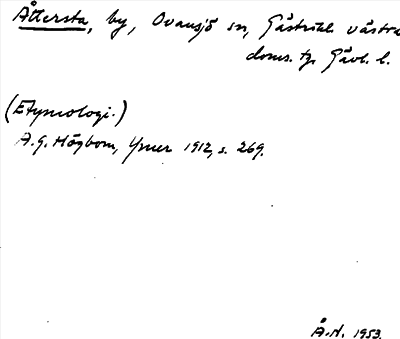 Åttersta, by, Ovansjö sn, Gästrikl. västra
doms. tg. Gävl. l.
(Etymologi.)
A.G. Högbom, Ymer 1912, s. 269.
Å.N. 1953.